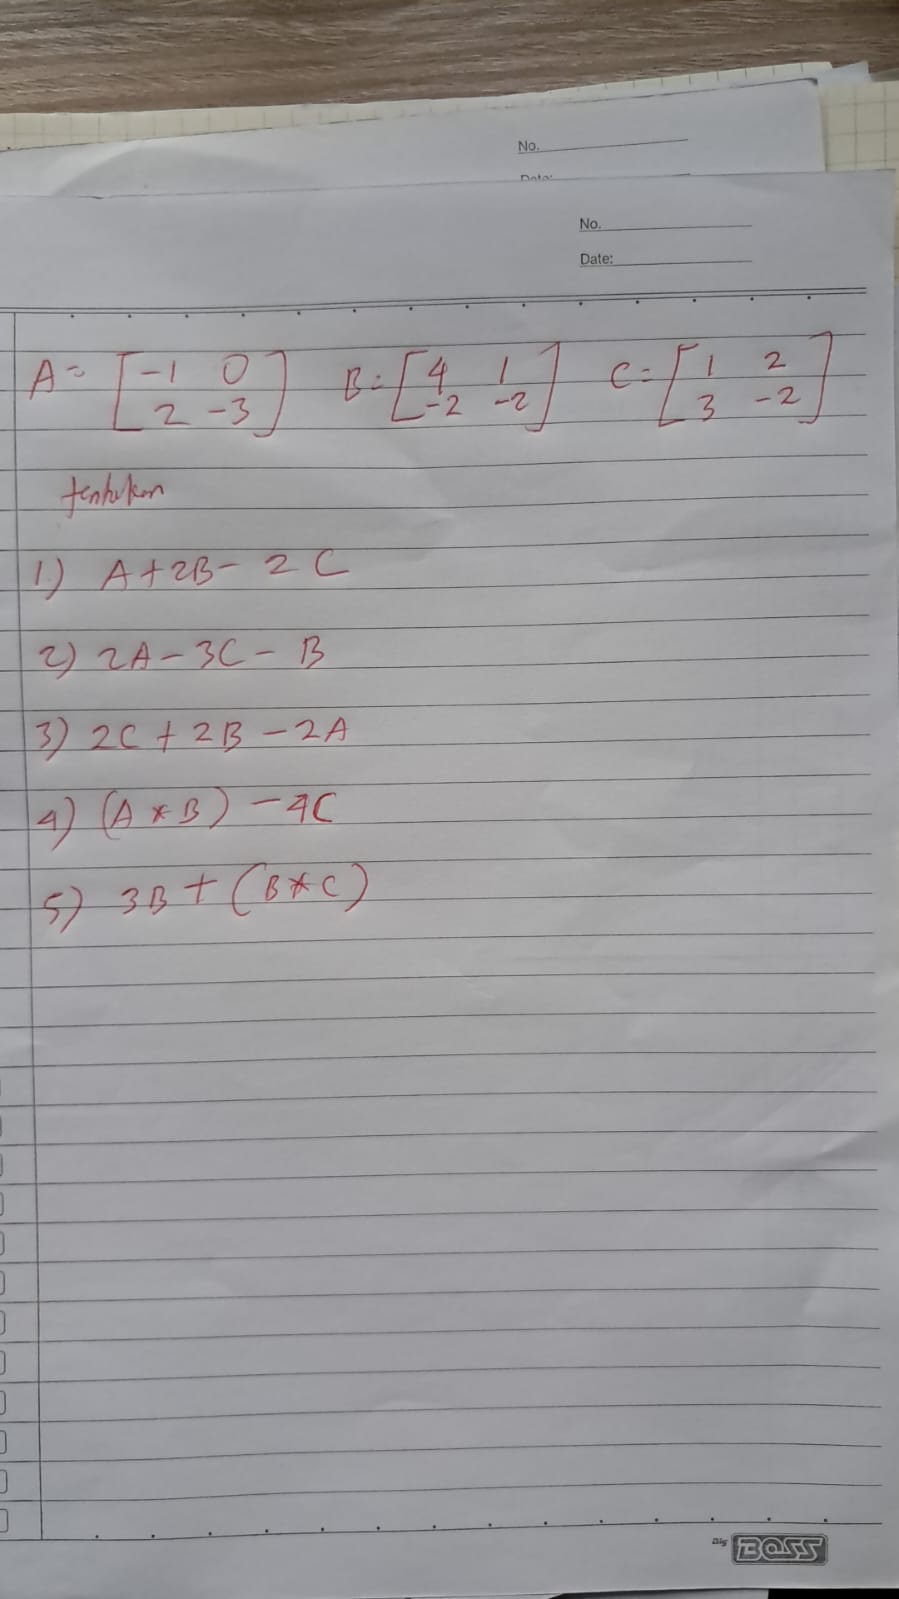 No.
Date:
No.
Date:
A = [-1 0] B = [4 1] C = [1 2]
[2 -3] [-2 -2] [3 -2]
tentukan
1) A + 2B - 2C
2) 2A - 3C - B
3) 2C + 2B - 2A
4) (A * B) - 4C
5) 3B + (B * C)
Big BOSS